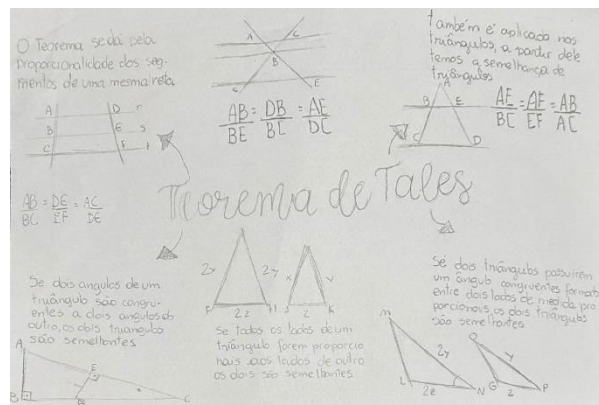 O Teorema se dá pela
proporcionalidade dos seg-
mentos de uma mesma reta
A D r
B E s
C F t
AB = DE = AC
BC EF DE
A C
B
E
AB = DB = AE
BE BC DC
também é aplicado nos
triângulos, a partir dele
temos a semelhança de
triângulos
A
B E
C D
AE = AF = AB
BC EF AC
Teorema de Tales
Se dois angulos de um
triângulo são congru-
entes a dois angulos do
outro, os dois triangulos
são semelhantes
A
E
B C
2x 2y
F 2z H
x
K
Se todos os lados de um
triângulo forem proporcio
nais aos lados de outro
os dois são semelhantes
Se dois triângulos possuirem
um ângulo congruentes formado
entre dois lados de medida pro
porcionais, os dois triângulos
são semelhantes
M
2y
L N
O
y
G z P